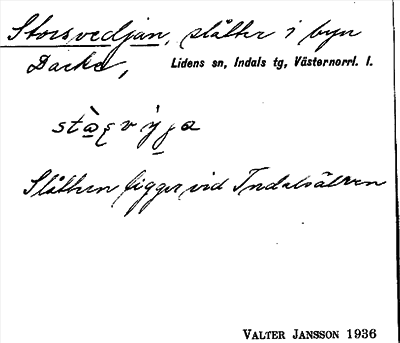 Storsvedjan, slåtter i byn
Backe, Lidens sn, Indals tg, Västernorrl. l.
Slåttern ligger vid Indalsälven
VALTER JANSSON 1936